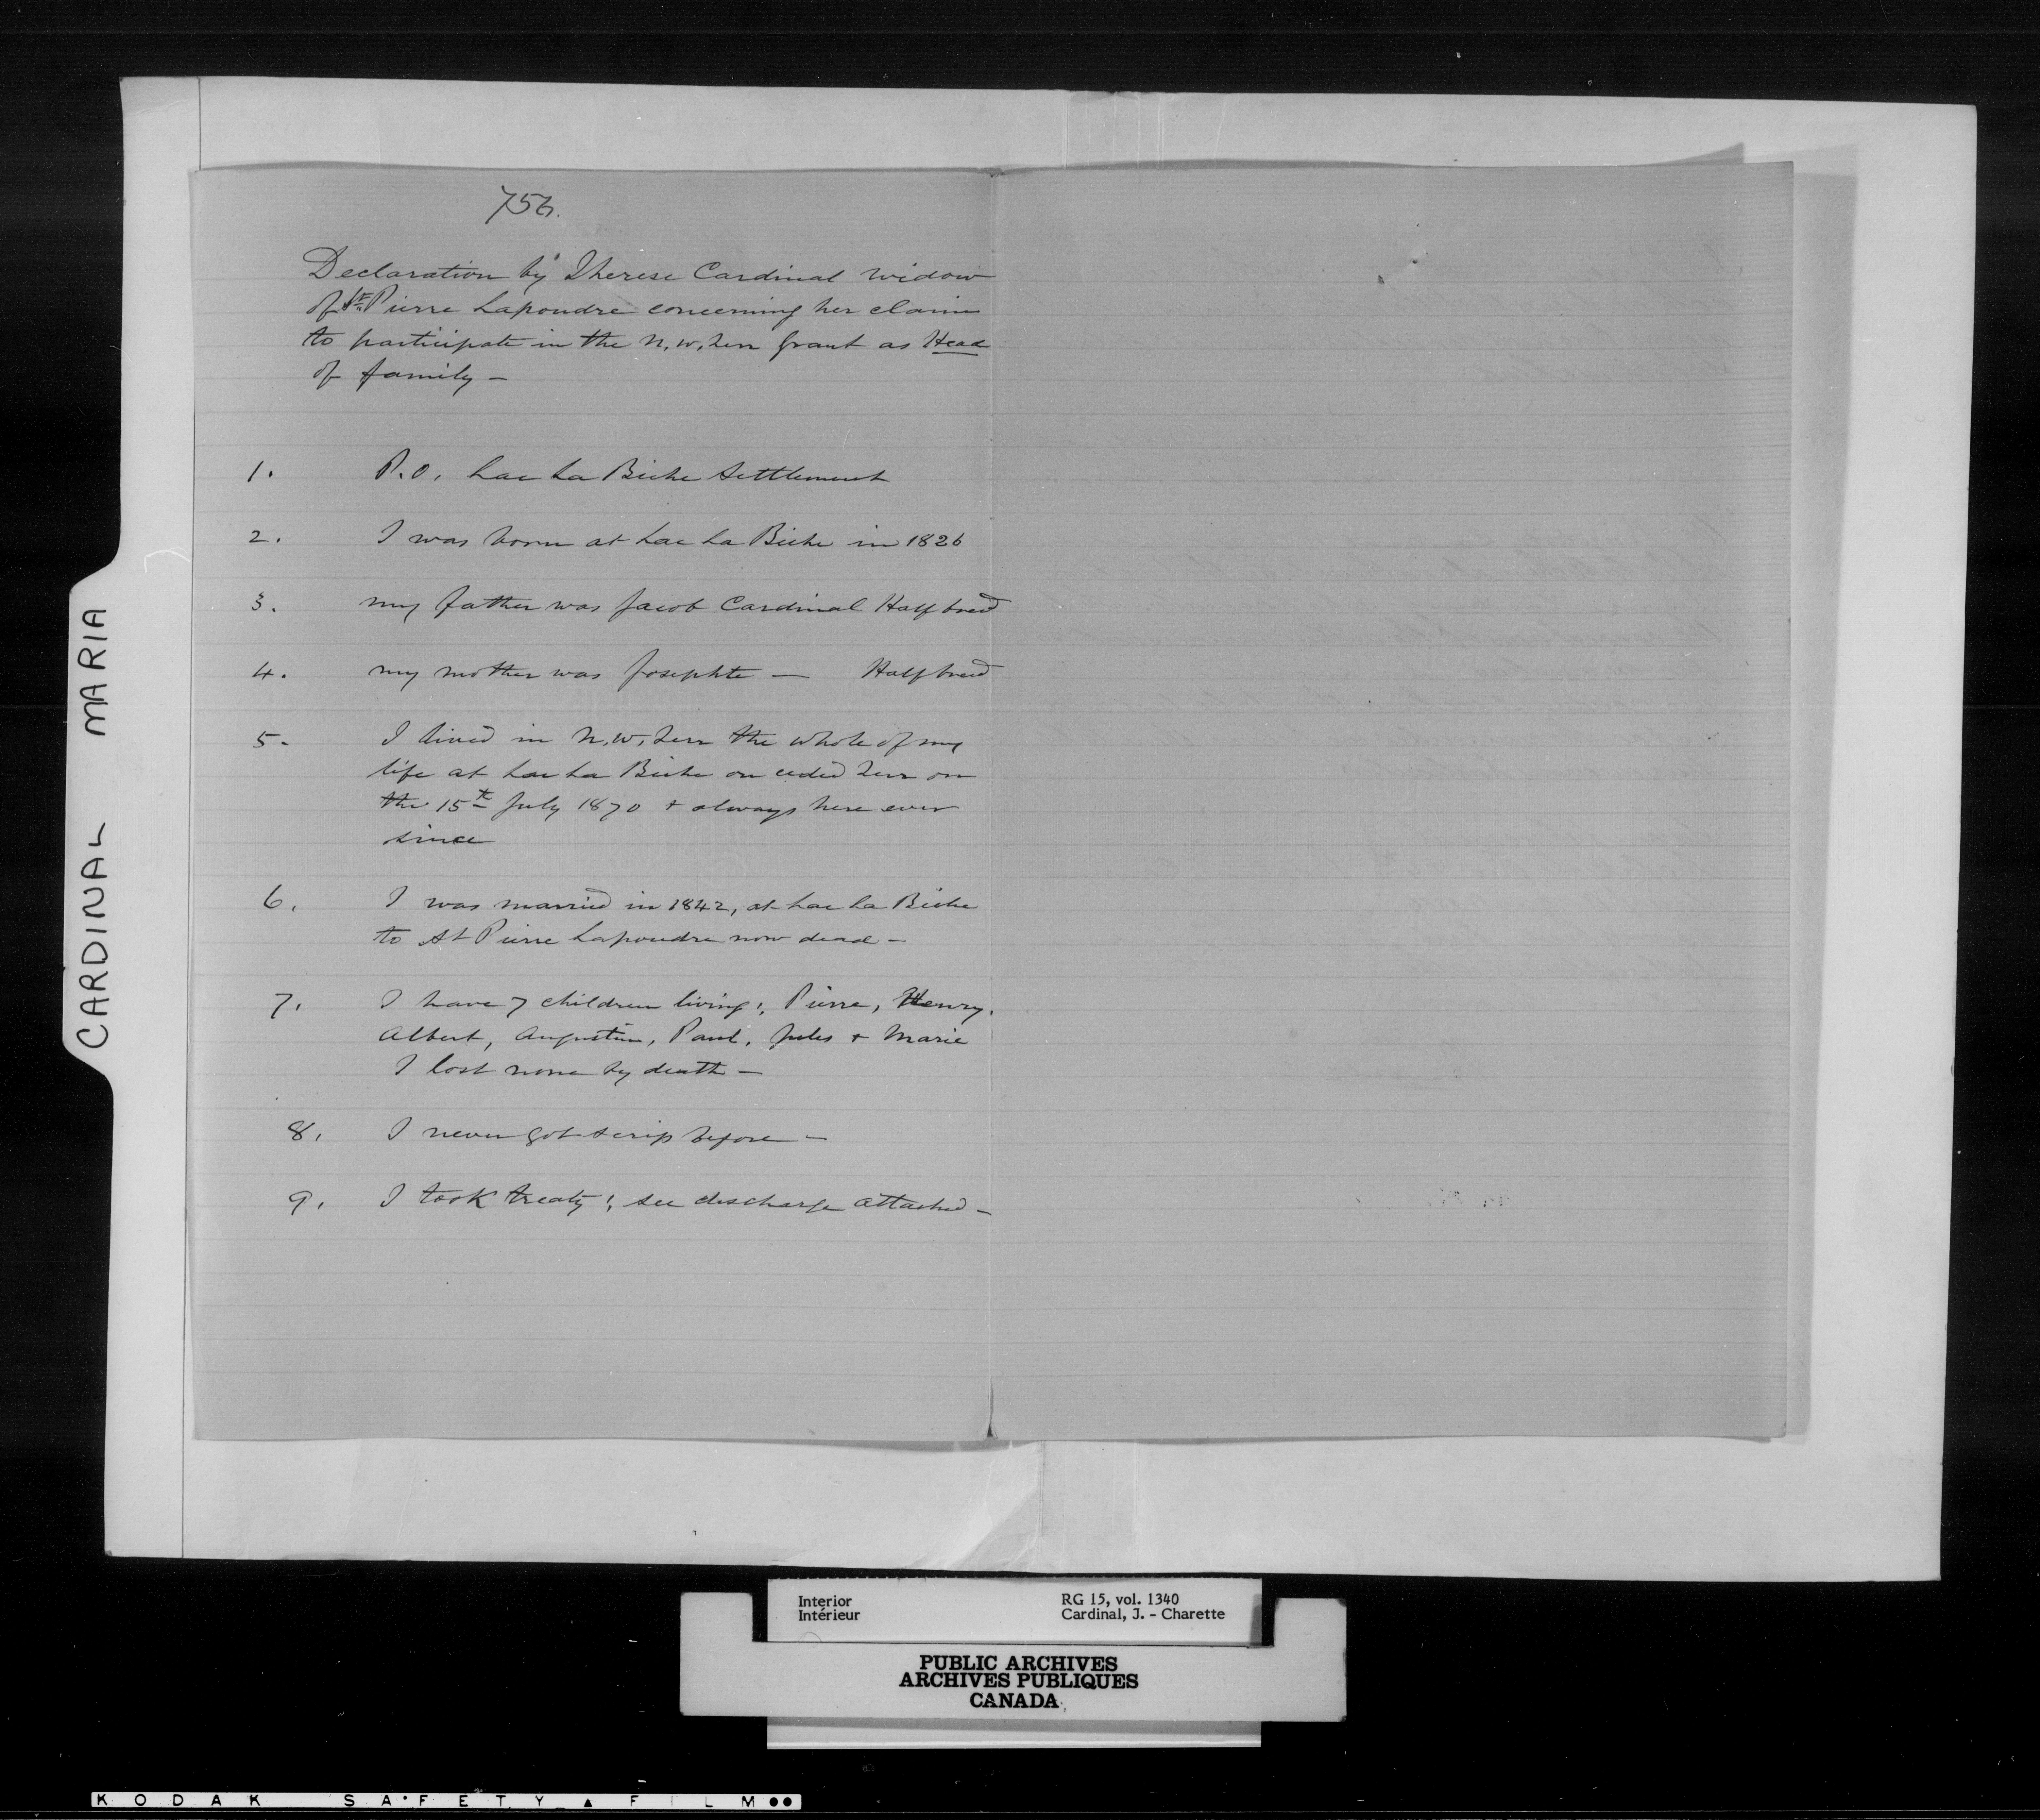 756.
Declaration by Therese Cardinal widow
of St. Pierre Lapoudre concerning her claim
to participate in the N.W. Terr Grant as Head
of family —
1. P.O. Lac La Biche Settlement
2. I was born at Lac La Biche in 1826
3. my father was Jacob Cardinal Halfbreed
4. my mother was Josephte — Halfbreed
5. I lived in N.W. Terr the whole of my
life at Lac La Biche on ceded Terr on
the 15th July 1870 + always here ever
since
6. I was married in 1842, at Lac La Biche
to St Pierre Lapoudre now dead —
7. I have 7 children living:, Pierre, Henry,
Albert, Augustin, Paul, Jules + Marie
I lost none by death —
8. I never got scrip before —
9. I took treaty; see discharge attached —
CARDINAL MARIA
Interior
Intérieur
RG 15, vol. 1340
Cardinal, J. - Charette
PUBLIC ARCHIVES
ARCHIVES PUBLIQUES
CANADA
KODAK SAFETY ▲ FILM ●●